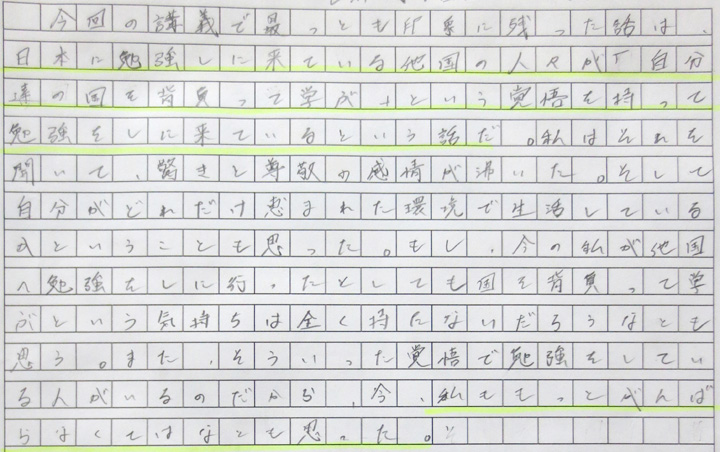 今回の講義で最っとも印象に残った話は、
日本に勉強しに来ている他国の人々が「自分
達の国を背負って学ぶ」という覚悟を持って
勉強をしに来ているという話だ。私はそれを
聞いて、驚きと尊敬の感情が沸いた。そして
自分がどれだけ恵まれた環境で生活している
かということも思った。もし、今の私が他国
へ勉強をしに行ったとしても国を背負って学
ぶという気持ちは全く持たないだろうなとも
思う。また、そういった覚悟で勉強をしてい
る人がいるのだから、今、私ももっとがんば
らなくてはなとも思った。